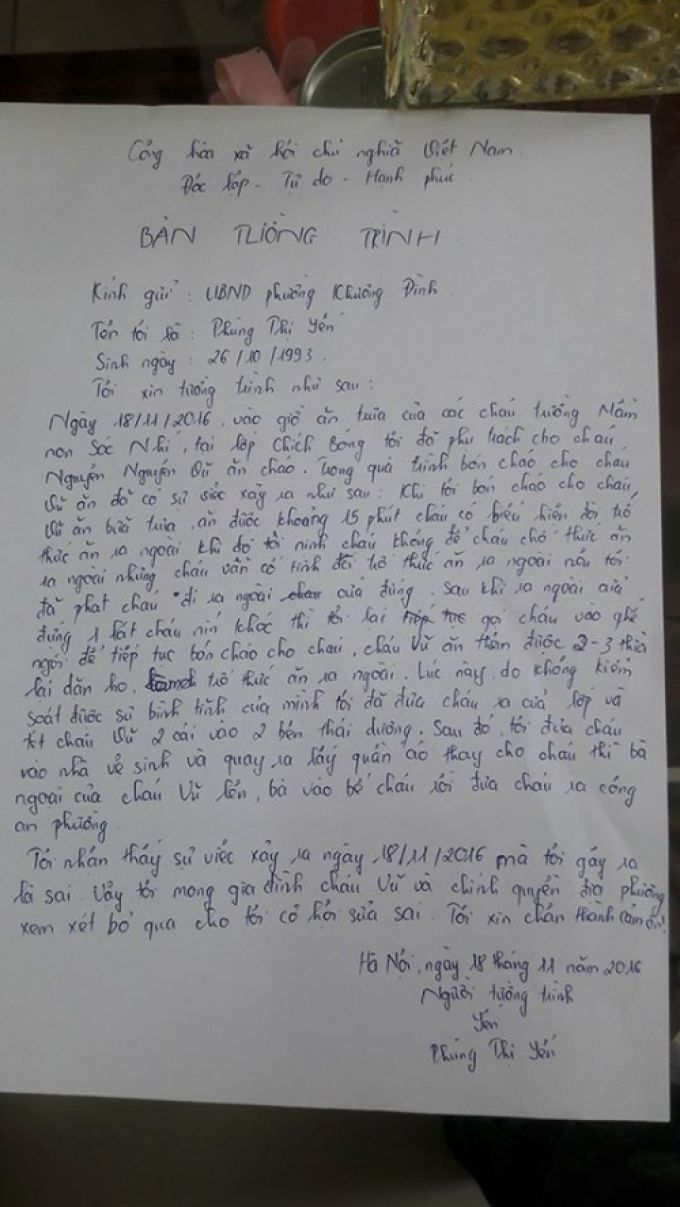 Cộng hòa xã hội chủ nghĩa Việt Nam.
Độc lập - Tự do - Hạnh phúc
BẢN TƯỜNG TRÌNH
Kính gửi : UBND phường Khương Đình
Tên tôi là : Phùng Thị Yến
Sinh ngày : 26/10/1993.
Tôi xin tường trình như sau :
Ngày 18/11/2016, vào giờ ăn trưa của các cháu trường Mầm
non Sóc Nhí, tại lớp Chích Bông tôi đã phụ trách cho cháu
Nguyễn Nguyên Vũ ăn cháo. Trong quá trình bón cháo cho cháu
Vũ ăn đã có sự việc xảy ra như sau: Khi tôi bón cháo cho cháu,
Vũ ăn bữa trưa, ăn được khoảng 15 phút cháu có biểu hiện đòi trớ
thức ăn ra ngoài khi đó tôi nịnh cháu không để cháu chớ thức ăn
ra ngoài nhưng cháu vẫn cố tình đòi trớ thức ăn ra ngoài nên tôi
đã phạt cháu đi ra ngoài cửa đứng. Sau khi ra ngoài cửa
đứng 1 lát cháu nín khóc thì tôi lại gọi cháu vào ghế
ngồi để tiếp tục bón cháo cho cháu, cháu Vũ ăn thêm được 2-3 thìa
lại dặn ho, trớ thức ăn ra ngoài. Lúc này, do không kiểm
soát được sự bình tĩnh của mình tôi đã đưa cháu ra cửa lớp và
tét cháu Vũ 2 cái vào 2 bên thái dương. Sau đó, tôi đưa cháu
vào nhà vệ sinh và quay ra lấy quần áo thay cho cháu thì bà
ngoại của cháu Vũ lên, bà vào bế cháu rồi đưa cháu ra công
an phường.
Tôi nhận thấy sự việc xảy ra ngày 18/11/2016 mà tôi gây ra
là sai. Vậy tôi mong gia đình cháu Vũ và chính quyền địa phương
xem xét bỏ qua cho tôi cơ hội sửa sai. Tôi xin chân thành cảm ơn!
Hà Nội, ngày 18 tháng 11 năm 2016
Người tường trình
Yến
Phùng Thị Yến